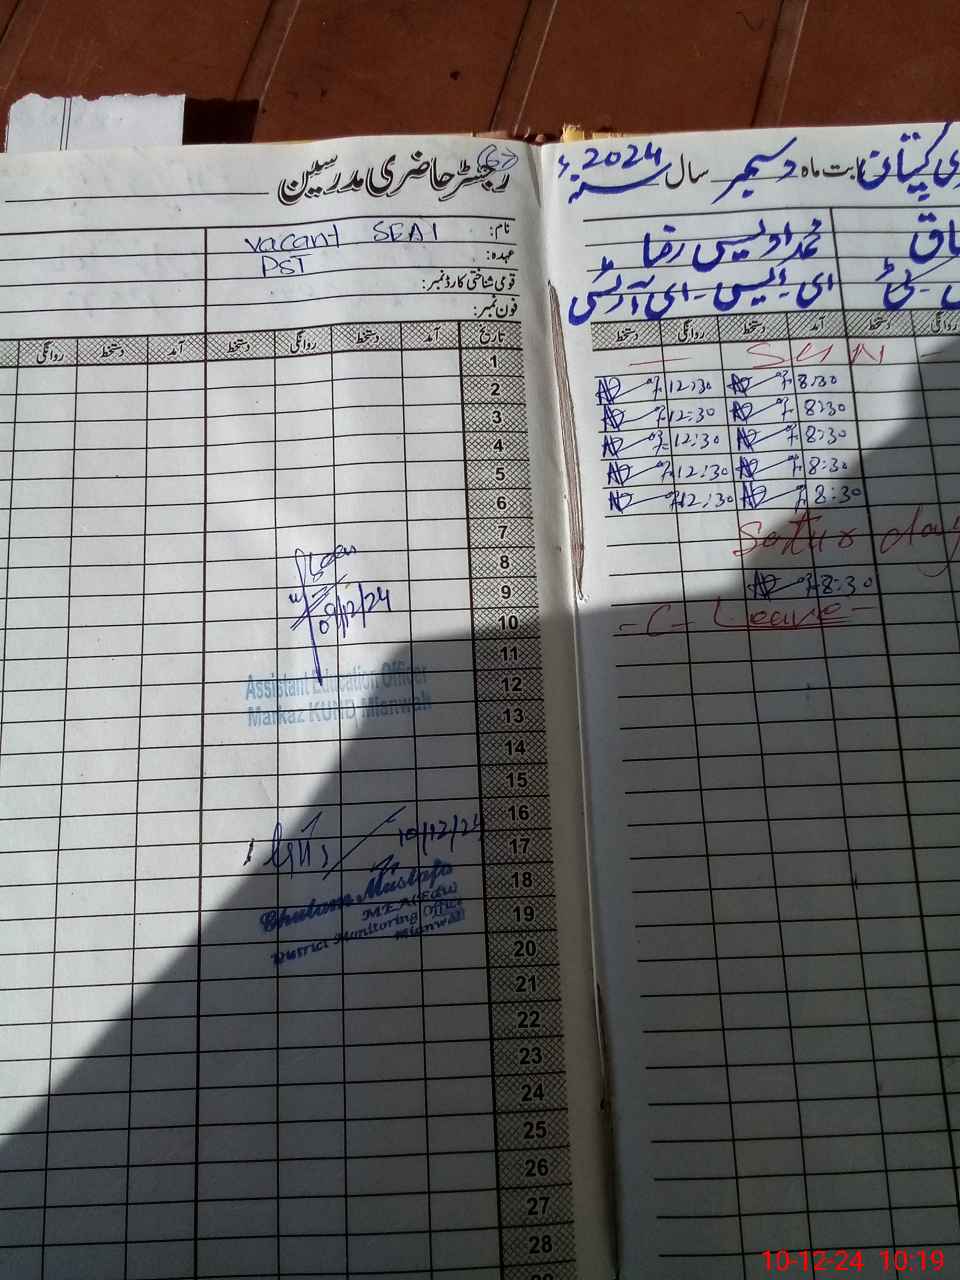 رجسٹر حاضری مدرسین
بابت ماہ دسمبر سال 2024
نام: Vacant SEAI
عہدہ: PST
قومی شناختی کارڈ نمبر:
فون نمبر:
محمد اویس رضا
ای۔ایس۔ای آرٹس
تاریخ آمد دستخط روانگی دستخط آمد دستخط روانگی
دستخط آمد دستخط روانگی دستخط
1 SUN
2 8:30 12:30
3 8:30 12:30
4 8:30 12:30
5 8:30 12:30
6 8:30 12:30
7 Saturday
8
9 8:30
10 - C - Leave -
11
12
13
14
15
16
17
18
19
20
21
22
23
24
25
26
27
28
09/12/24
Assistant Education Officer
Markaz KUND Mianwali
10/12/24
Ghulam Mustafa
MEA(Edu)
District Monitoring Office
Mianwali
10-12-24 10:19